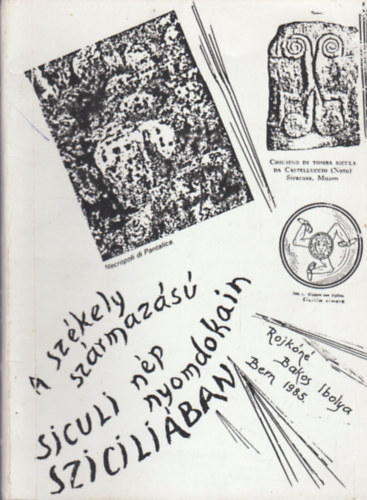 CHIUSINO DI TOMBA SICULA
DA CASTELLUCCIO (Noto)
Siracusa, Museo
Necropoli di Pantalica
A székely
származású
siculi nép
nyomdokain
SZICILIÁBAN
Rojkóné
Bakos Ibolya
Bern 1985.